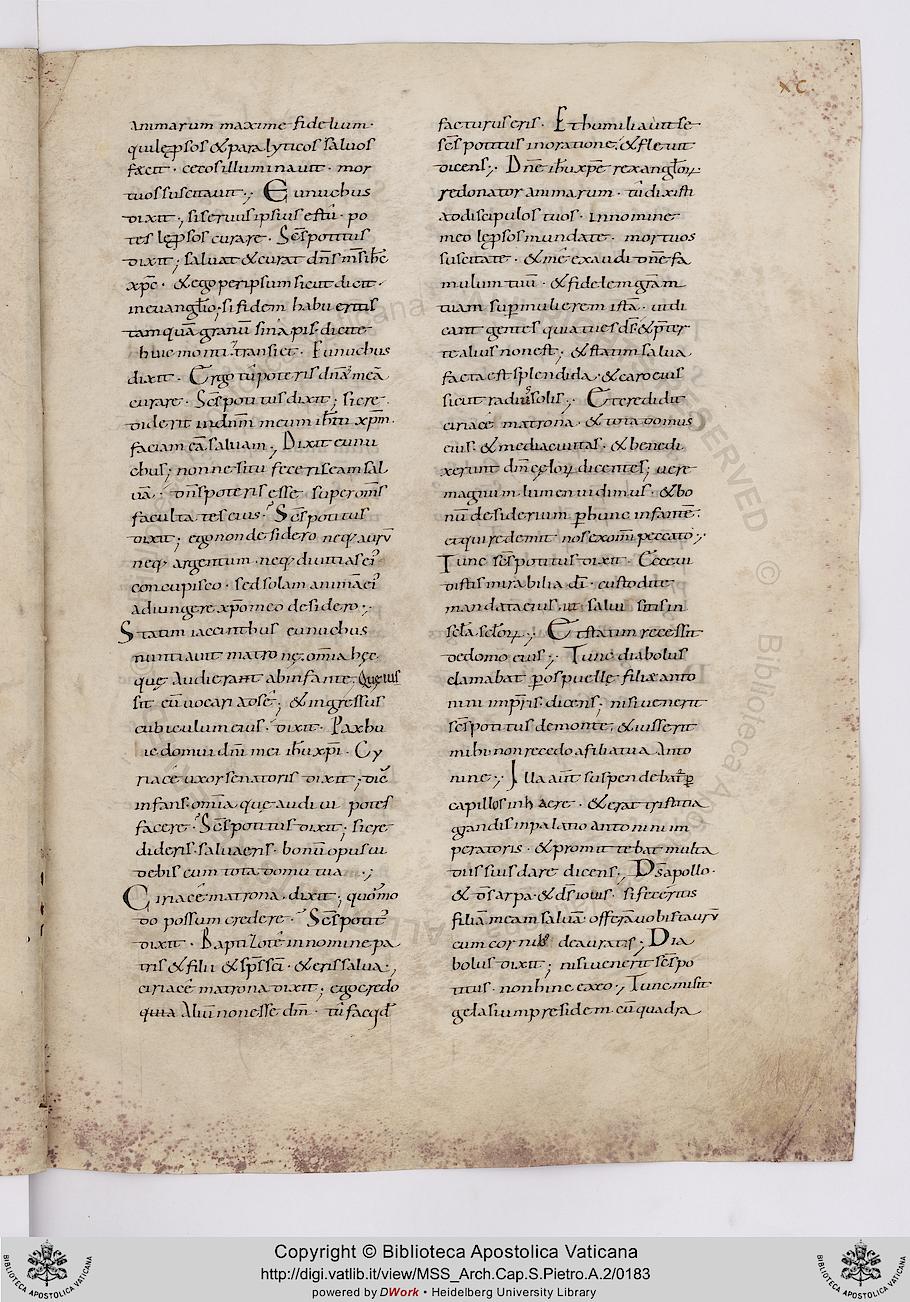 xc.
animarum maxime fidelium·
qui lęprsos & paralyticos saluos
fecit· cecos illuminauit· mor
tuos suscitauit·; Eunuchus
dixit·, si seruus ipsius es tu· po
tes lęprsos curare· Scs potitus
dixit; saluat & curat dns ms ihc
xpc· & ego per ipsum sicut dicit·
in euanglio; si fidem habueritis
tam quā granū sinapis· dicite
huic monti· transiet· Eunuchus
dixit· Ergo tu poteris dnā meā
curare· Scs potitus dixit; si cre
diderit in dnm meum ihm xpm·
faciam eā saluam·, Dixit eunu
chus; nonne si tu feceris eam sal
uā· dns poteris esse super oms
facultates eius· Scs potitus
dixit; ego non desidero neq· aurū
neq· argentum· neq· diuitias ei·
concupisco· sed solam animā ei
adiungere xpo meo desidero·,
Statim iaccinthus eunuchus
nuntiauit matronę· omia hęc
quę audierant ab infante· Quę ius
sit eū uocari ad se; & ingressus
cubiculum eius· dixit· Pax hu
ic domui dni mei ihu xpi· Cy
riace uxor senatoris dixit; dic
infans· omia que audiui potes
facere· Scs potitus dixit; si cre
dideris· salua eris· bonū opus ui
debis cum tota domu tua·;
Ciriace matrona· dixit; quomo
do possum credere· Scs potit
dixit· Baptizote in nomine pa
tris & filii & sps sci· & eris salua·,
ciriace matrona dixit; ego credo
quia aliū non esse dm· tu fac qd
facturus eris· Et humiliauit se
scs potitus in oratione; & fleuit
dicens·, Dne ihu xpe rex anglor
redonator animarum· tu dixisti
ad discipulos tuos· in nomine
meo lęprsos mundate· mortuos
suscitate· & me exaudi dne fa
mulum tuū· & fidelem gram
tuam super mulierem istā· ut di
cant gentes quia tu es ds & pter
te alius non est; & statim salua
facta est splendida· & caro eius
sicut radius solis·, Et credidit
ciriace matrona· & tota domus
eius· & media ciuitas· & benedi
xerunt dm cęlor dicentes; uere
magnum lumen uidimus· & bo
nū desiderium p hunc infantē·
et qui redemit nos ex omi peccato·,
Tunc scs potitus dixit· Ecce ui
distis mirabilia di· custodite
mandata eius, ut salui sitis in
scla sclor·, Et statim recessit
de domo eius·, Tunc diabolus
clamabat p os puelle filiæ anto
nini impris· dicens; nisi uenerit
scs potitus de monte; & iusserit
mihi non recedo a filia tua anto
nine·, Illa aut suspendebat p
capillos in h aere· & erat tristitia
grandis in palatio antonini im
peratoris· & promittebat multa
diis suis dare dicens·, Ds apollo·
& ds arpa· & ds iouis· si feceritis
filiā meam saluā· offerā uobis taurū
cum cornib deauratis; Dia
bolus dixit; nisi uenerit scs po
titus· non hinc exeo·, Tunc misit
gelasium presidem· cū quadra
Copyright © Biblioteca Apostolica Vaticana
http://digi.vatlib.it/view/MSS_Arch.Cap.S.Pietro.A.2/0183
powered by DWork • Heidelberg University Library
BIBLIOTECA APOSTOLICA VATICANA
BIBLIOTECA APOSTOLICA VATICANA